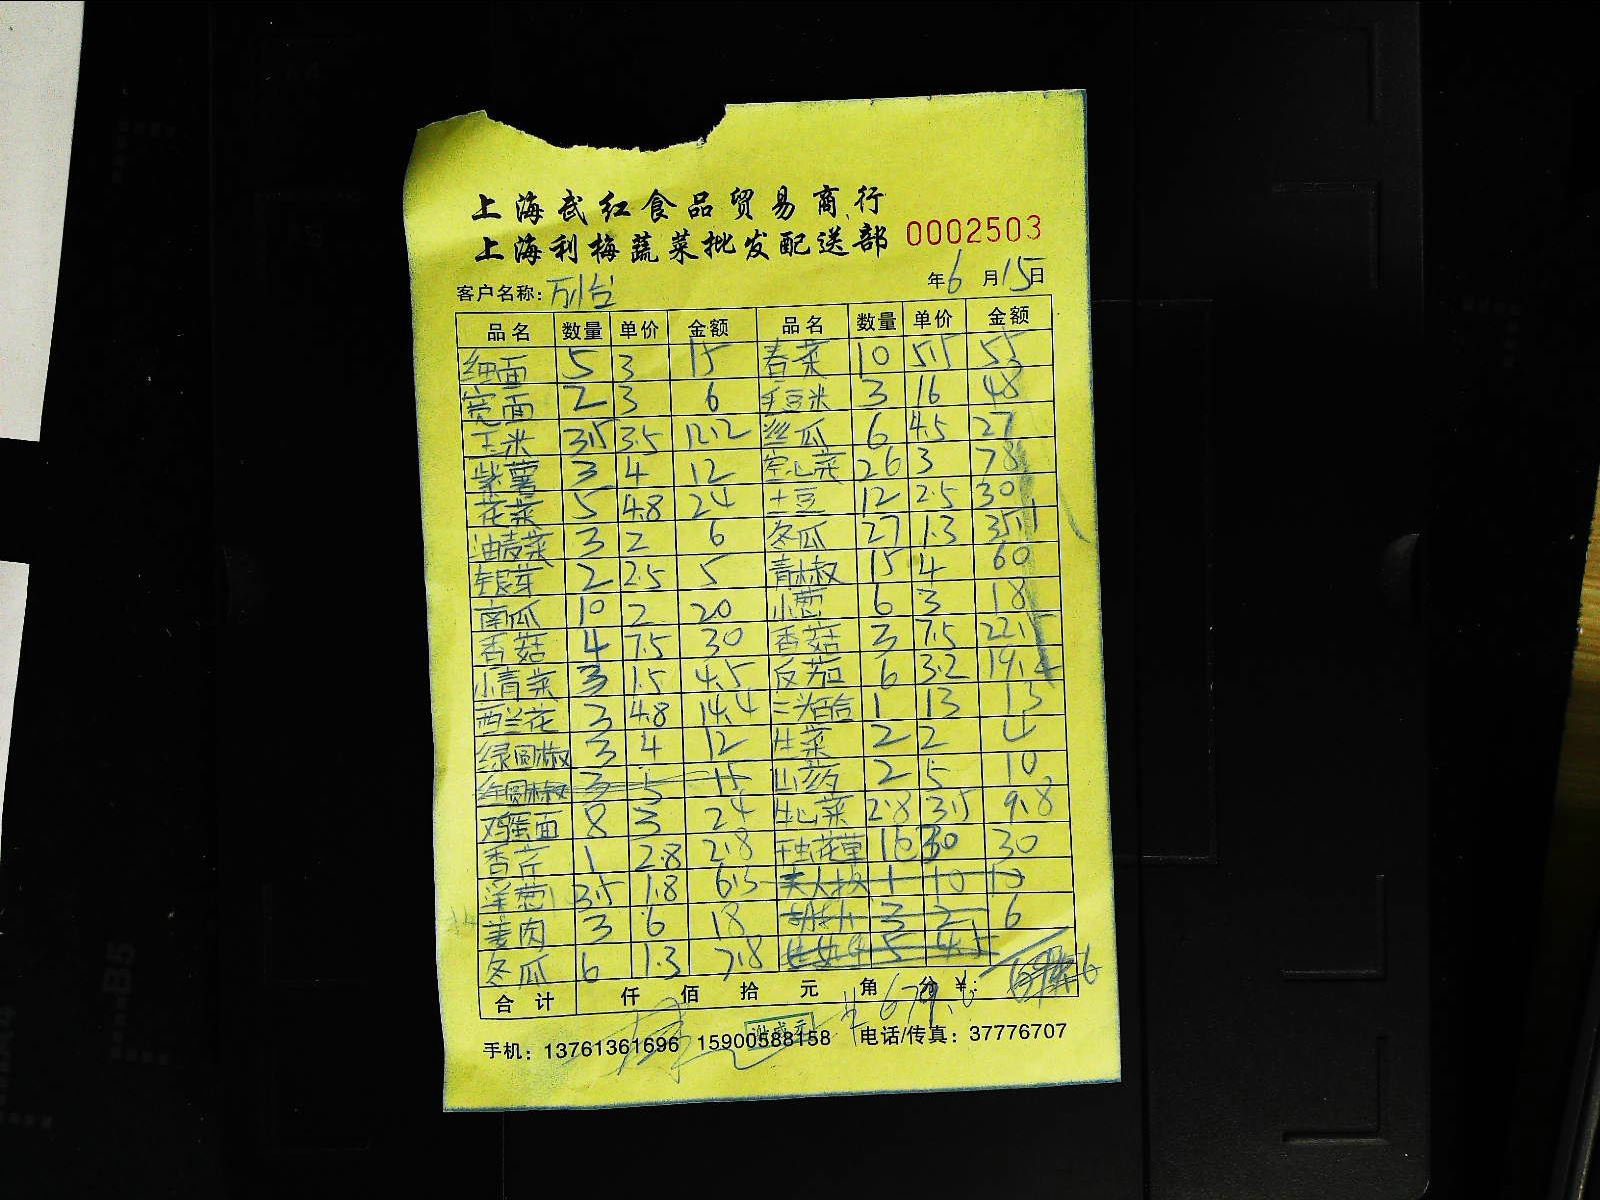 上海武红食品贸易商行
上海利梅蔬菜批发配送部 0002503
客户名称: 万川台 年6月15日
品名 数量 单价 金额 品名 数量 单价 金额
细面 5 3 15 春菜 10 5.5 55
宽面 2 3 6 毛豆米 3 16 48
玉米 3.5 3.5 12.2 丝瓜 6 4.5 27
紫薯 3 4 12 空心菜 26 3 78
花菜 5 4.8 24 土豆 12 2.5 30
油麦菜 3 2 6 冬瓜 27 1.3 35.1
银芽 2 2.5 5 青椒 15 4 60
南瓜 10 2 20 小葱 6 3 18
香菇 4 7.5 30 香菇 3 7.5 22.5
小青菜 3 1.5 4.5 反茄 6 3.2 19.2
西兰花 3 4.8 14.4 三头百合 1 13 13
绿圆椒 3 4 12 生菜 2 2 4
红圆椒 3 5 15 山药 2 5 10
鸡蛋面 8 3 24 生心菜 2.8 3.5 9.8
香芹 1 2.8 2.8 干虫花草 30 30
洋葱 3.5 1.8 6.3 1 10 10
姜肉 3 6 18 3 2 6
冬瓜 6 1.3 7.8 5 4.5
合计 仟 佰 拾 元 角 分 ¥: 679.6
手机: 13761361696 15900588158 电话/传真: 37776707